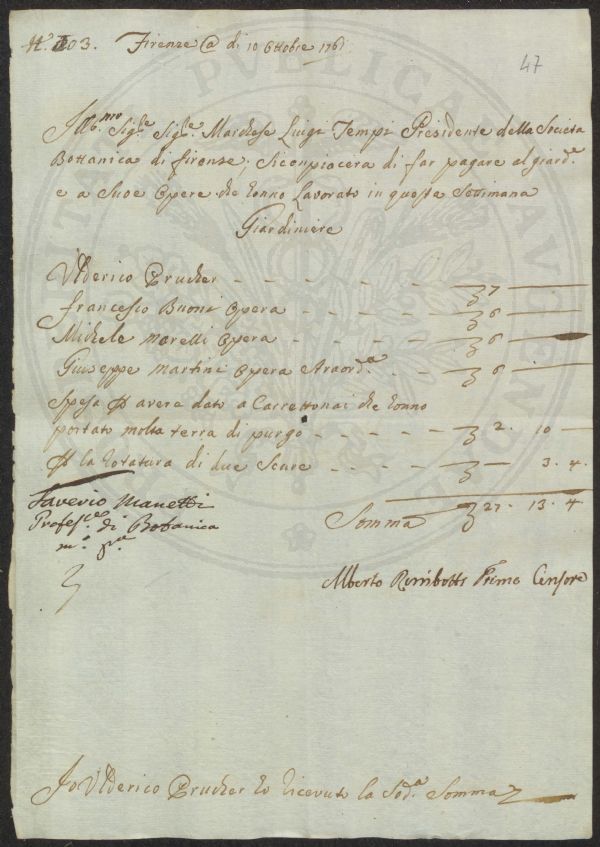 N.º 103. Firenze @ di 10 Ottobre 176
47
Ill.mo Sig.re Sig.re Marchese Luigi Tempi Presidente della Societa
Bottanica di firenze; Siconpiacera di far pagare al giard.e
e a Suoe Opere che Honno Lavorato in questa Settimana
Giardiniere
Ulderico Prucher - - - - - - 7 —
francesco Buoni Opera - - - - 6 —
Michele Morelli Opera - - - - 6 —
Giuseppe Martini Opera Straord.a - - 6 —
Spesa P avere dato a Carrettonai che Honno
portato molta terra di purgo - - - - - 2 . 10 —
P la Rotatura di due Scure - - - - — 3 . 4 .
Saverio Manetti
Profess.re di Botanica
m.o p.a
Somma 27 . 13 . 4
Alberto Rimbotti Primo Censore
Jo Ulderico Prucher Ho Ricevuto la Sod.a Somma
PVBLICA